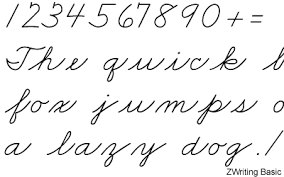 1234567890+=
The quick b
fox jumps o
a lazy dog.!
ZWriting Basic